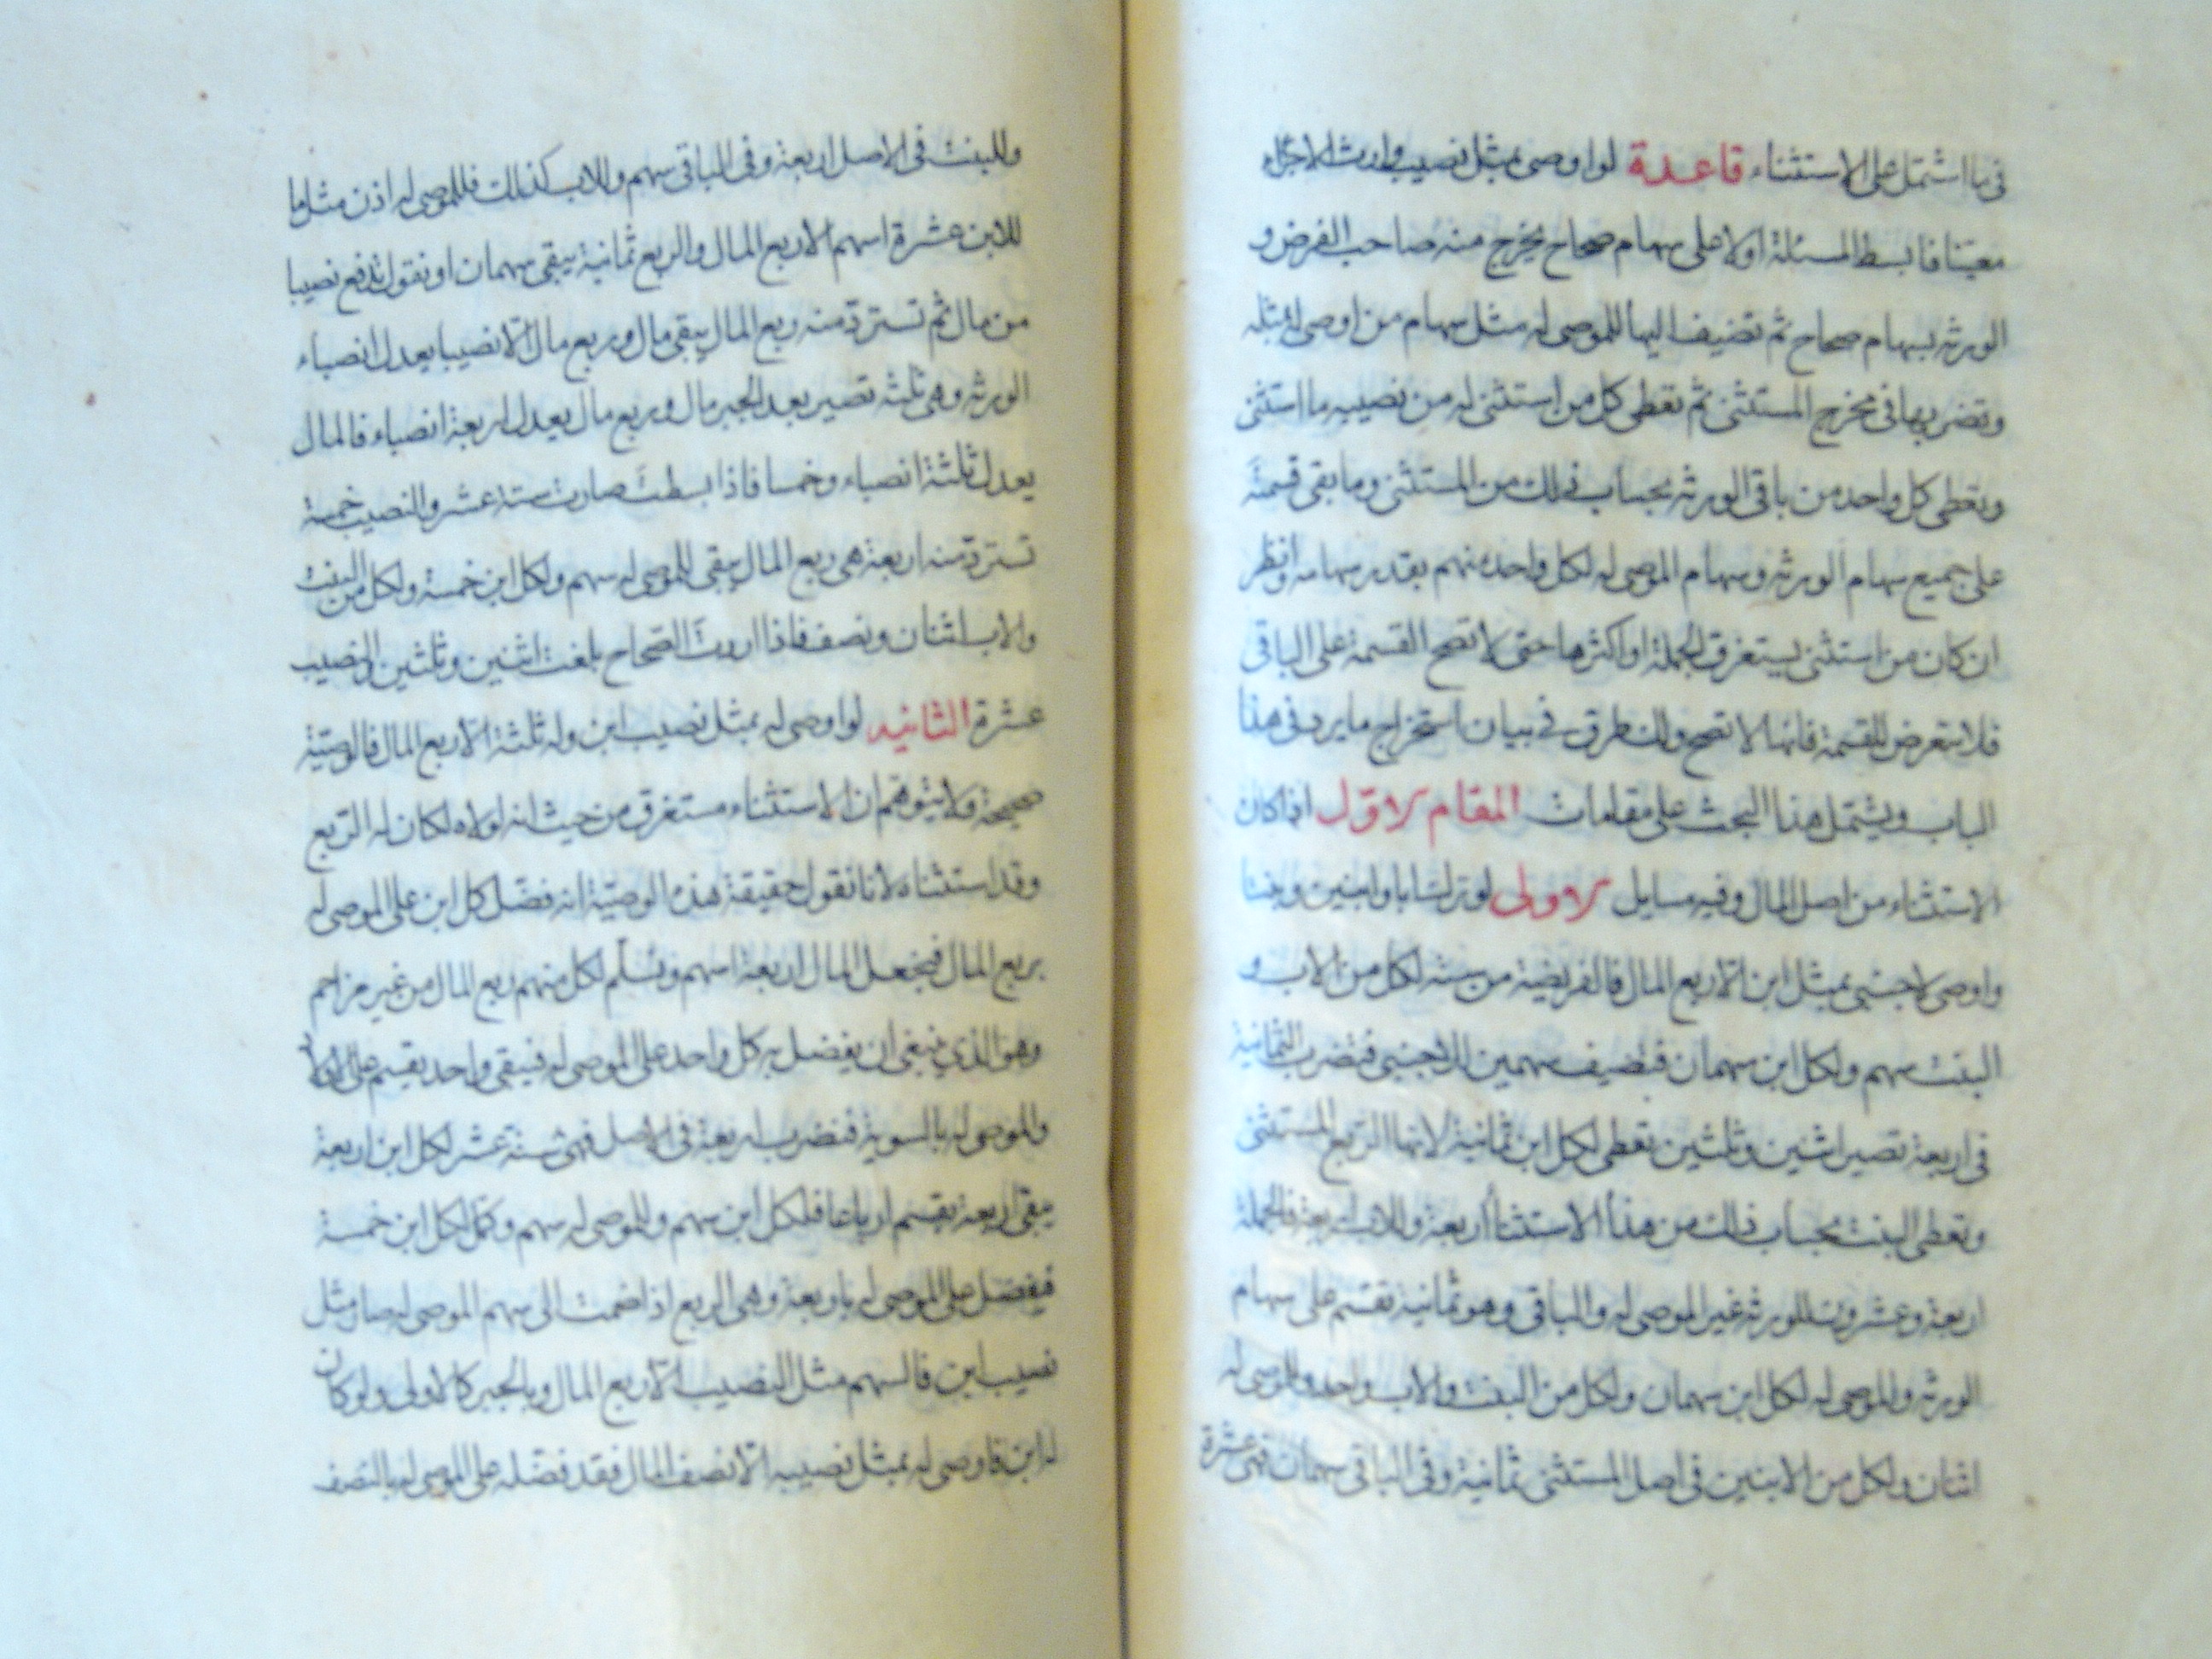 فيما اشتمل على الاستثناء قاعدة لو اوصى بمثل نصيب وارث الا جزاء
معينا فابسط المسئلة اولا على سهام صحاح يخرج منه صاحب الفرض و
الورثه بسهام صحاح ثم تضيف اليها للموصى له مثل سهام من اوصى له بمثله
وتضربها فى مخرج المستثنى ثم تعطى كل من استثنى له من نصيبه ما استثنى
وتعطى كل واحد من باقى الورثه بحساب ذلك من المستثنى وما بقى قسمته
على جميع سهام الورثه وسهام الموصى له لكل واحد منهم بقدر سهامه وانظر
ان كان من استثنى يستغرق الجملة او اكثرها حتى لا تصح القسمة على الباقى
فلا تتعرض للقسمة فانها لا تصح ولك طرق فى بيان استخراج ما يرد فى هذا
الباب ويشتمل هذا البحث على مقامات المقام الاول اذا كان
الاستثناء من اصل المال وفيه مسايل الاولى لو ترك ابا وابنين وبنتا
واوصى لاجنبى بمثل ابن الا ربع المال فالفريضة من سته لكل من الاب و
البنت سهم ولكل ابن سهمان فتضيف سهمين للاجنبى فتضرب الثمانية
فى اربعة تصير اثنين وثلثين تعطى لكل ابن ثمانية لانها الربع المستثنى
وتعطى البنت بحساب ذلك من هذا الاستثنا اربعة وللاب اربعة فالجملة
اربعة وعشرون للورثه غير الموصى له والباقى وهو ثمانية تقسم على سهام
الورثه وللموصى له لكل ابن سهمان ولكل من البنت والاب واحد وللموصى له
اثنان ولكل من الابنين فى اصل المستثنى ثمانية وفى الباقى سهمان فهى عشرة
وللبنت فى الاصل اربعة وفى الباقى سهم وللاب كذلك فللموصى له اذن مثل ما
للابن عشرة اسهم الا ربع المال والربع ثمانية يبقى سهمان او نقول تدفع نصيبا
من مال ثم تسترد منه ربع المال يبقى مال وربع مال الا نصيبا يعدل انصباء
الورثه وهى ثلثه تصير بعد الجبر مال وربع مال يعدل اربعة انصباء فالمال
يعدل ثلثة انصباء وخمسا فاذا بسطت صارت ستة عشر والنصيب خمسة
تسترد منه اربعة هى ربع المال يبقى للموصى له سهم ولكل ابن خمسة ولكل من البنت
والاب اثنان ونصف فاذا اردت الصحاح بلغت اثنين وثلثين والنصيب
عشرة الثانيه لو اوصى له بمثل نصيب ابن وله ثلثة الا ربع المال فالوصية
صحيحة ولا يتوهم ان الاستثناء مستغرق من حيث انه لولاه لكان له الربع
وقد استثناه لانا نقول حقيقة هذه الوصية انه فضل كل ابن على الموصى له
بربع المال فيجعل المال اربعة اسهم ونسلم لكل منهم ربع المال من غير مزاحم
وهو الذي ينبغى ان يفضل به كل واحد على الموصى له فيبقى واحد يقسم على الاولاد
والموصى له بالسوية فتضرب اربعة فى الاصل فهى ستة عشر لكل ابن اربعة
يبقى اربعة يقسم ارباعا فلكل ابن سهم وللموصى له سهم وكمل لكل ابن خمسة
فيفضل على الموصى له باربعة وهى الربع اذا ضمت الى سهم الموصى له صار مثل
نصيب ابن فالسهم مثل النصيب الا ربع المال وبالجبر كالاولى ولو كان
له ابن فاوصى له بمثل نصيبه الا نصف المال فقد فضله على الموصى له بالنصف